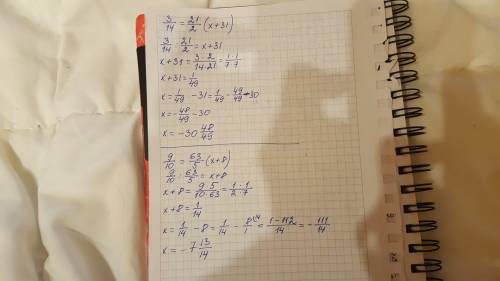 3/14 = 21/2 (x+31)
3/14 : 21/2 = x+31
x+31 = 3·2/14·21 = 1·1/7·7
x+31 = 1/49
x = 1/49 - 31 = 1/49 - 49/49 - 30
x = -48/49 - 30
x = -30 48/49
9/10 = 63/5 (x+8)
9/10 : 63/5 = x+8
x+8 = 9·5/10·63 = 1·1/2·7
x+8 = 1/14
x = 1/14 - 8 = 1/14 - 8/1 \14 = 1-112/14 = -111/14
x = -7 13/14